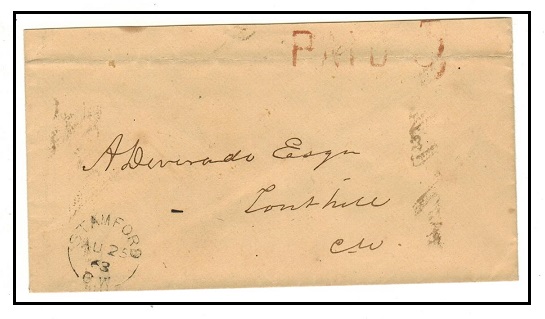 PAID 5
A. Deverado Esqr
Fonthill
C.W.
STAMFORD
AU 25
63
C.W.